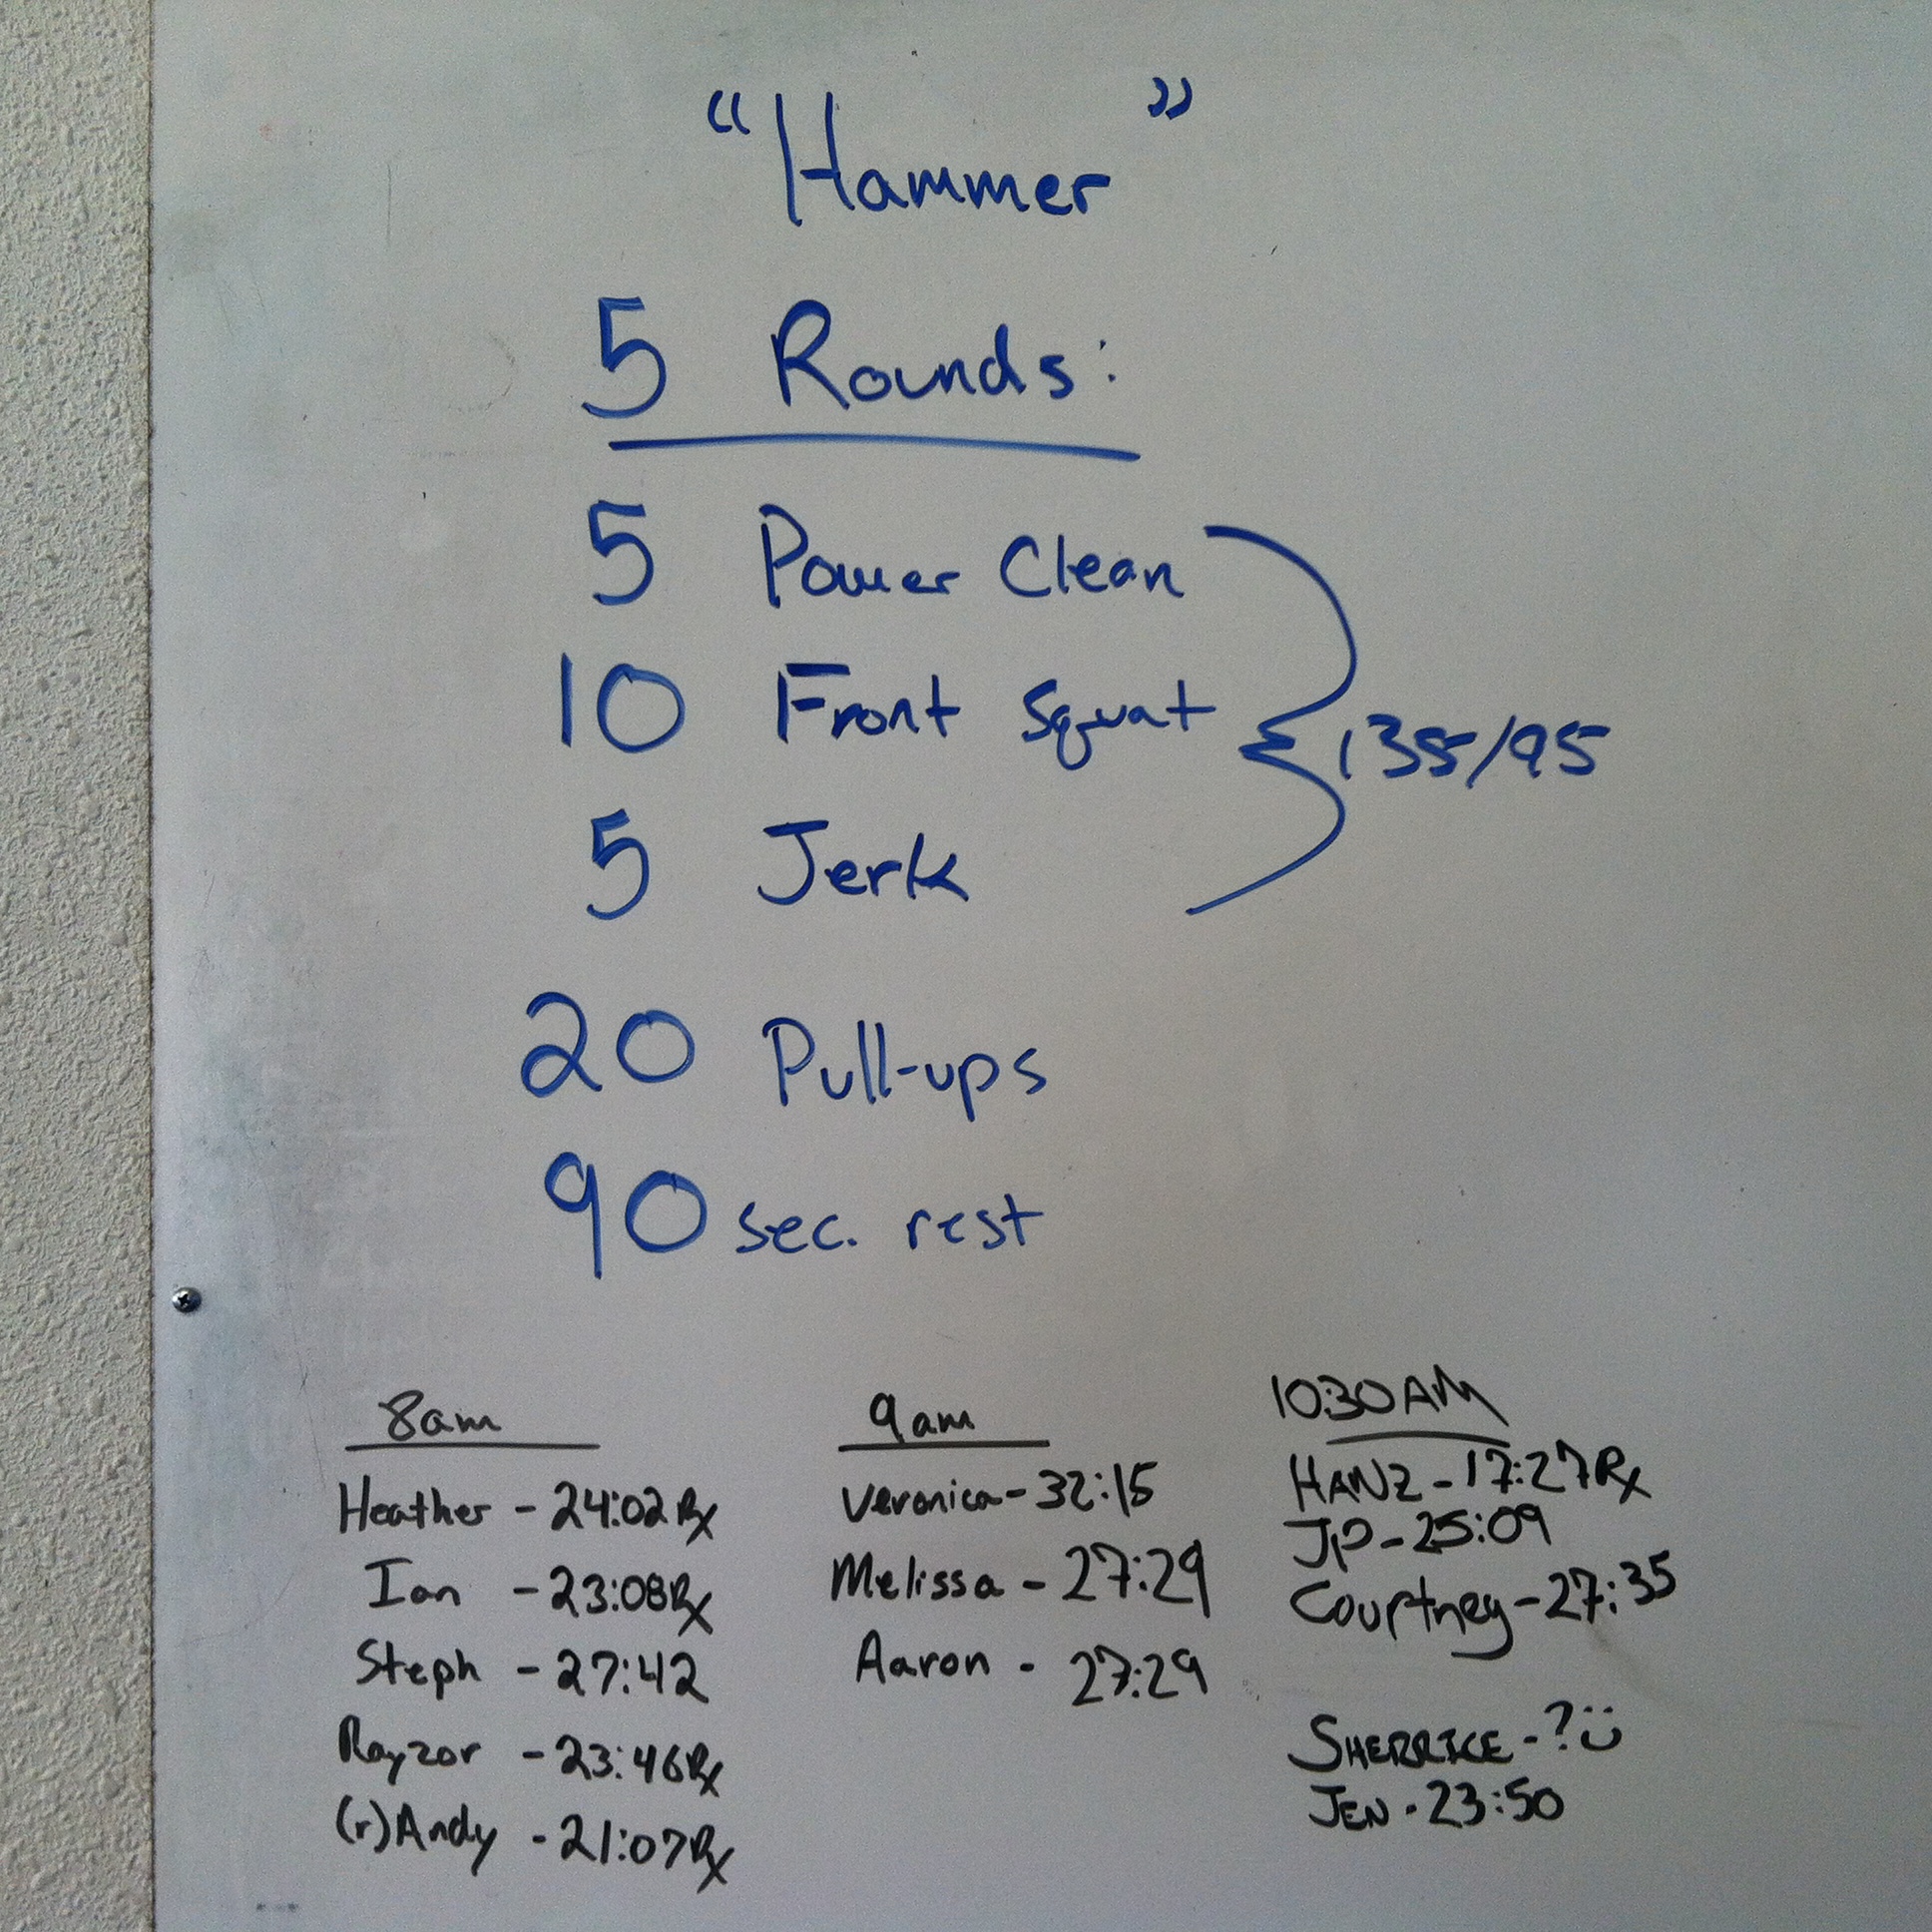 "Hammer"
5 Rounds:
5 Power Clean
10 Front Squat
135/95
5 Jerk
20 Pull-ups
90 sec. rest
8am
Heather - 24:02 Rx
Ian - 23:08 Rx
Steph - 27:42
Rayzor - 23:46 Rx
(r)Andy - 21:07 Rx
9am
Veronica - 32:15
Melissa - 27:29
Aaron - 27:29
10:30AM
HANZ - 17:27 Rx
JP - 25:09
Courtney - 27:35
SHERRICE - ? Ü
JEN - 23:50